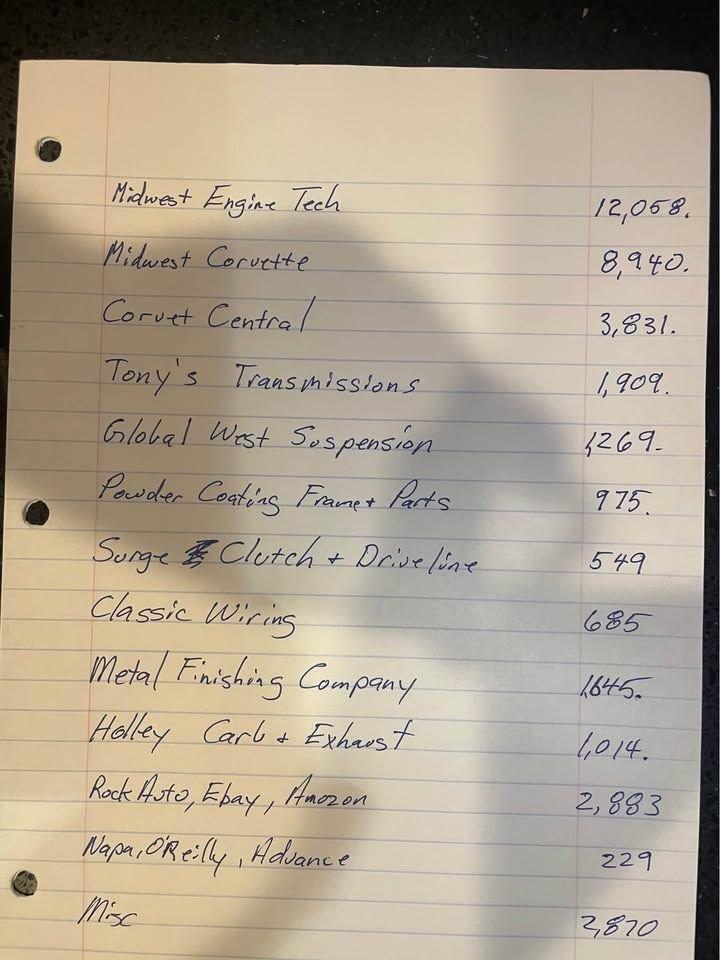 Midwest Engine Tech 12,058.
Midwest Corvette 8,940.
Corvet Central 3,831.
Tony's Transmissions 1,909.
Global West Suspension 1,269-
Powder Coating Frame + Parts 975.
Surge Clutch + Driveline 549
Classic Wiring 685
Metal Finishing Company 1,645.
Holley Carb + Exhaust 1,014.
Rock Auto, Ebay, Amozon 2,883
Napa, O'Reilly, Advance 229
Misc 2,870